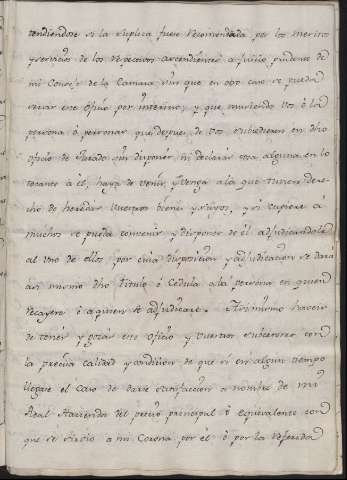 tendiendose si la suplica fuere recomendada por los meritos
y servicios de los respectivos ascendientes a juicio prudente de
mi Consejo de la Camara sin que en otro caso se pueda
servir este oficio por interino; y que muriendo vos ò la
persona ò personas que despues de vos subcedieren en dho
oficio de Jurado sin disponer ni declarar cosa alguna en lo
tocante à èl, haya de venir y venga a la que tuviere dere-
cho de heredar vuestros bienes y suyos, y si cupiere à
muchos se pueda convenir y disponer de èl adjudicandole
al uno de ellos por cuia disposicion y adjudicacion se dara
asi mismo dho titulo ò Cedula a la persona en quien
recayere ò a quien se adjudicare. Asi mismo haveis
de tener y gozar este oficio y vuestros subcesores con
la precisa calidad y condicion de que si en algun tiempo
llegare el caso de darse satisfaccion a nombre de mi
Real Hacienda del precio principal ò equivalente con
que se sirvio a mi Corona por èl ò por la referida